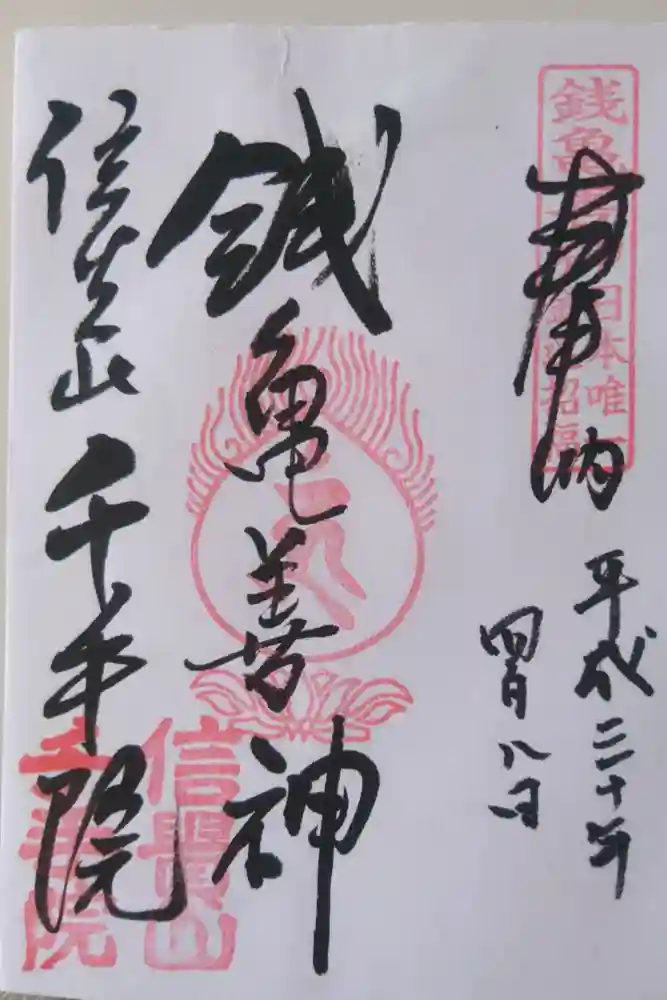 奉納
平成三十年
四月八日
銭亀善神
信貴山千手院
銭亀
日本唯一
招福
信貴山
千手院